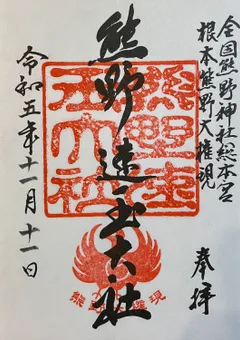 全国熊野神社総本宮
根本熊野大権現
奉拝
熊野速玉大社
熊野速玉大社
熊野権現
令和五年十一月十一日